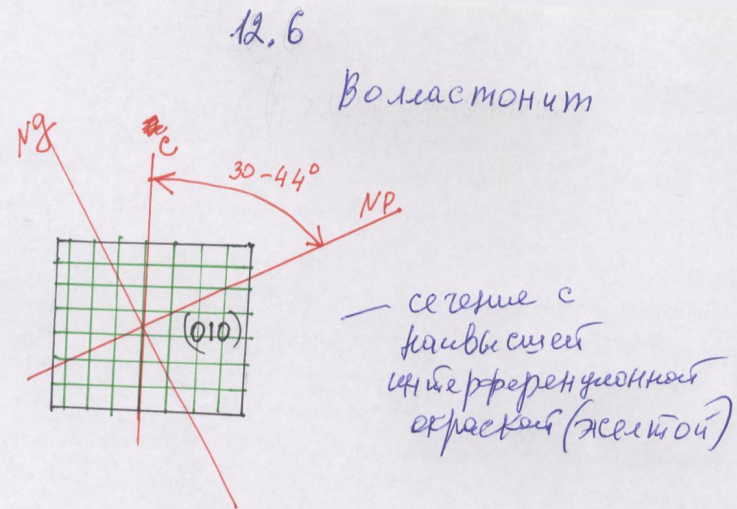 12.6
Волластонит
Ng
c
30-44°
NP
(010)
— сечение с
наивысшей
интерференционной
окраской (желтой)